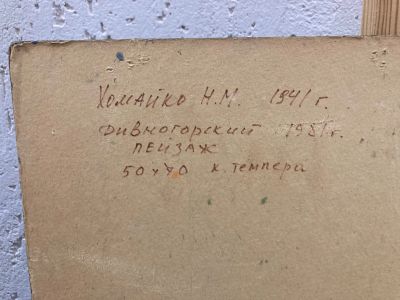 Хомайко Н.М. 1941 г.
Дивногорский 1981г.
пейзаж
50х70 к. темпера